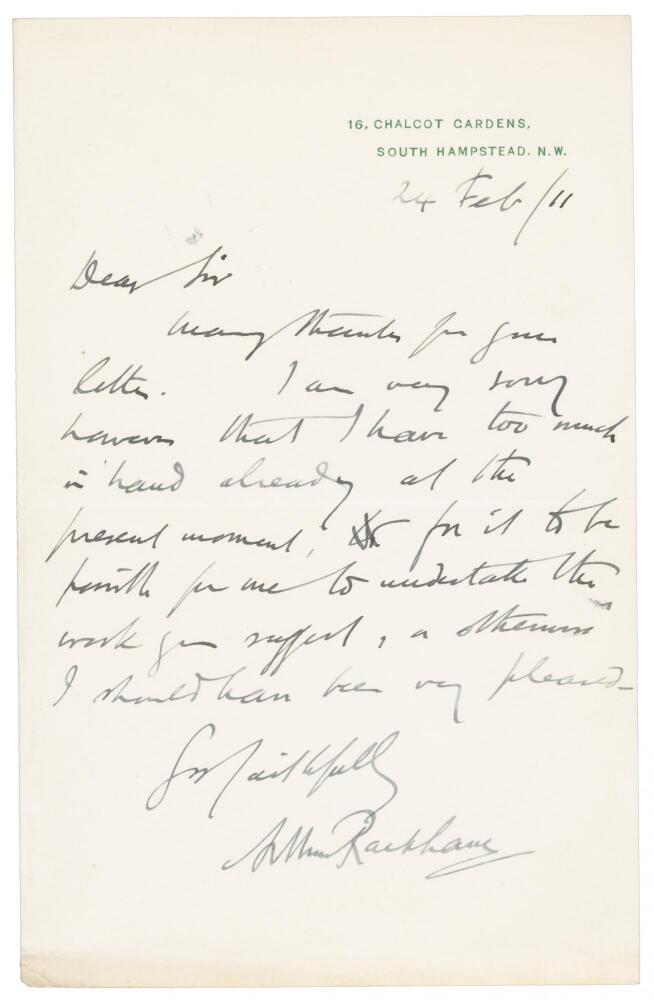 16, CHALCOT GARDENS,
SOUTH HAMPSTEAD. N.W.
24 Feb/11
Dear Sir
Many thanks for your
letter. I am very sorry
however that I have too much
in hand already at the
present moment, for it to be
possible for me to undertake the
work you suggest, or otherwise
I should have been very pleased
Yrs faithfully
Arthur Rackham